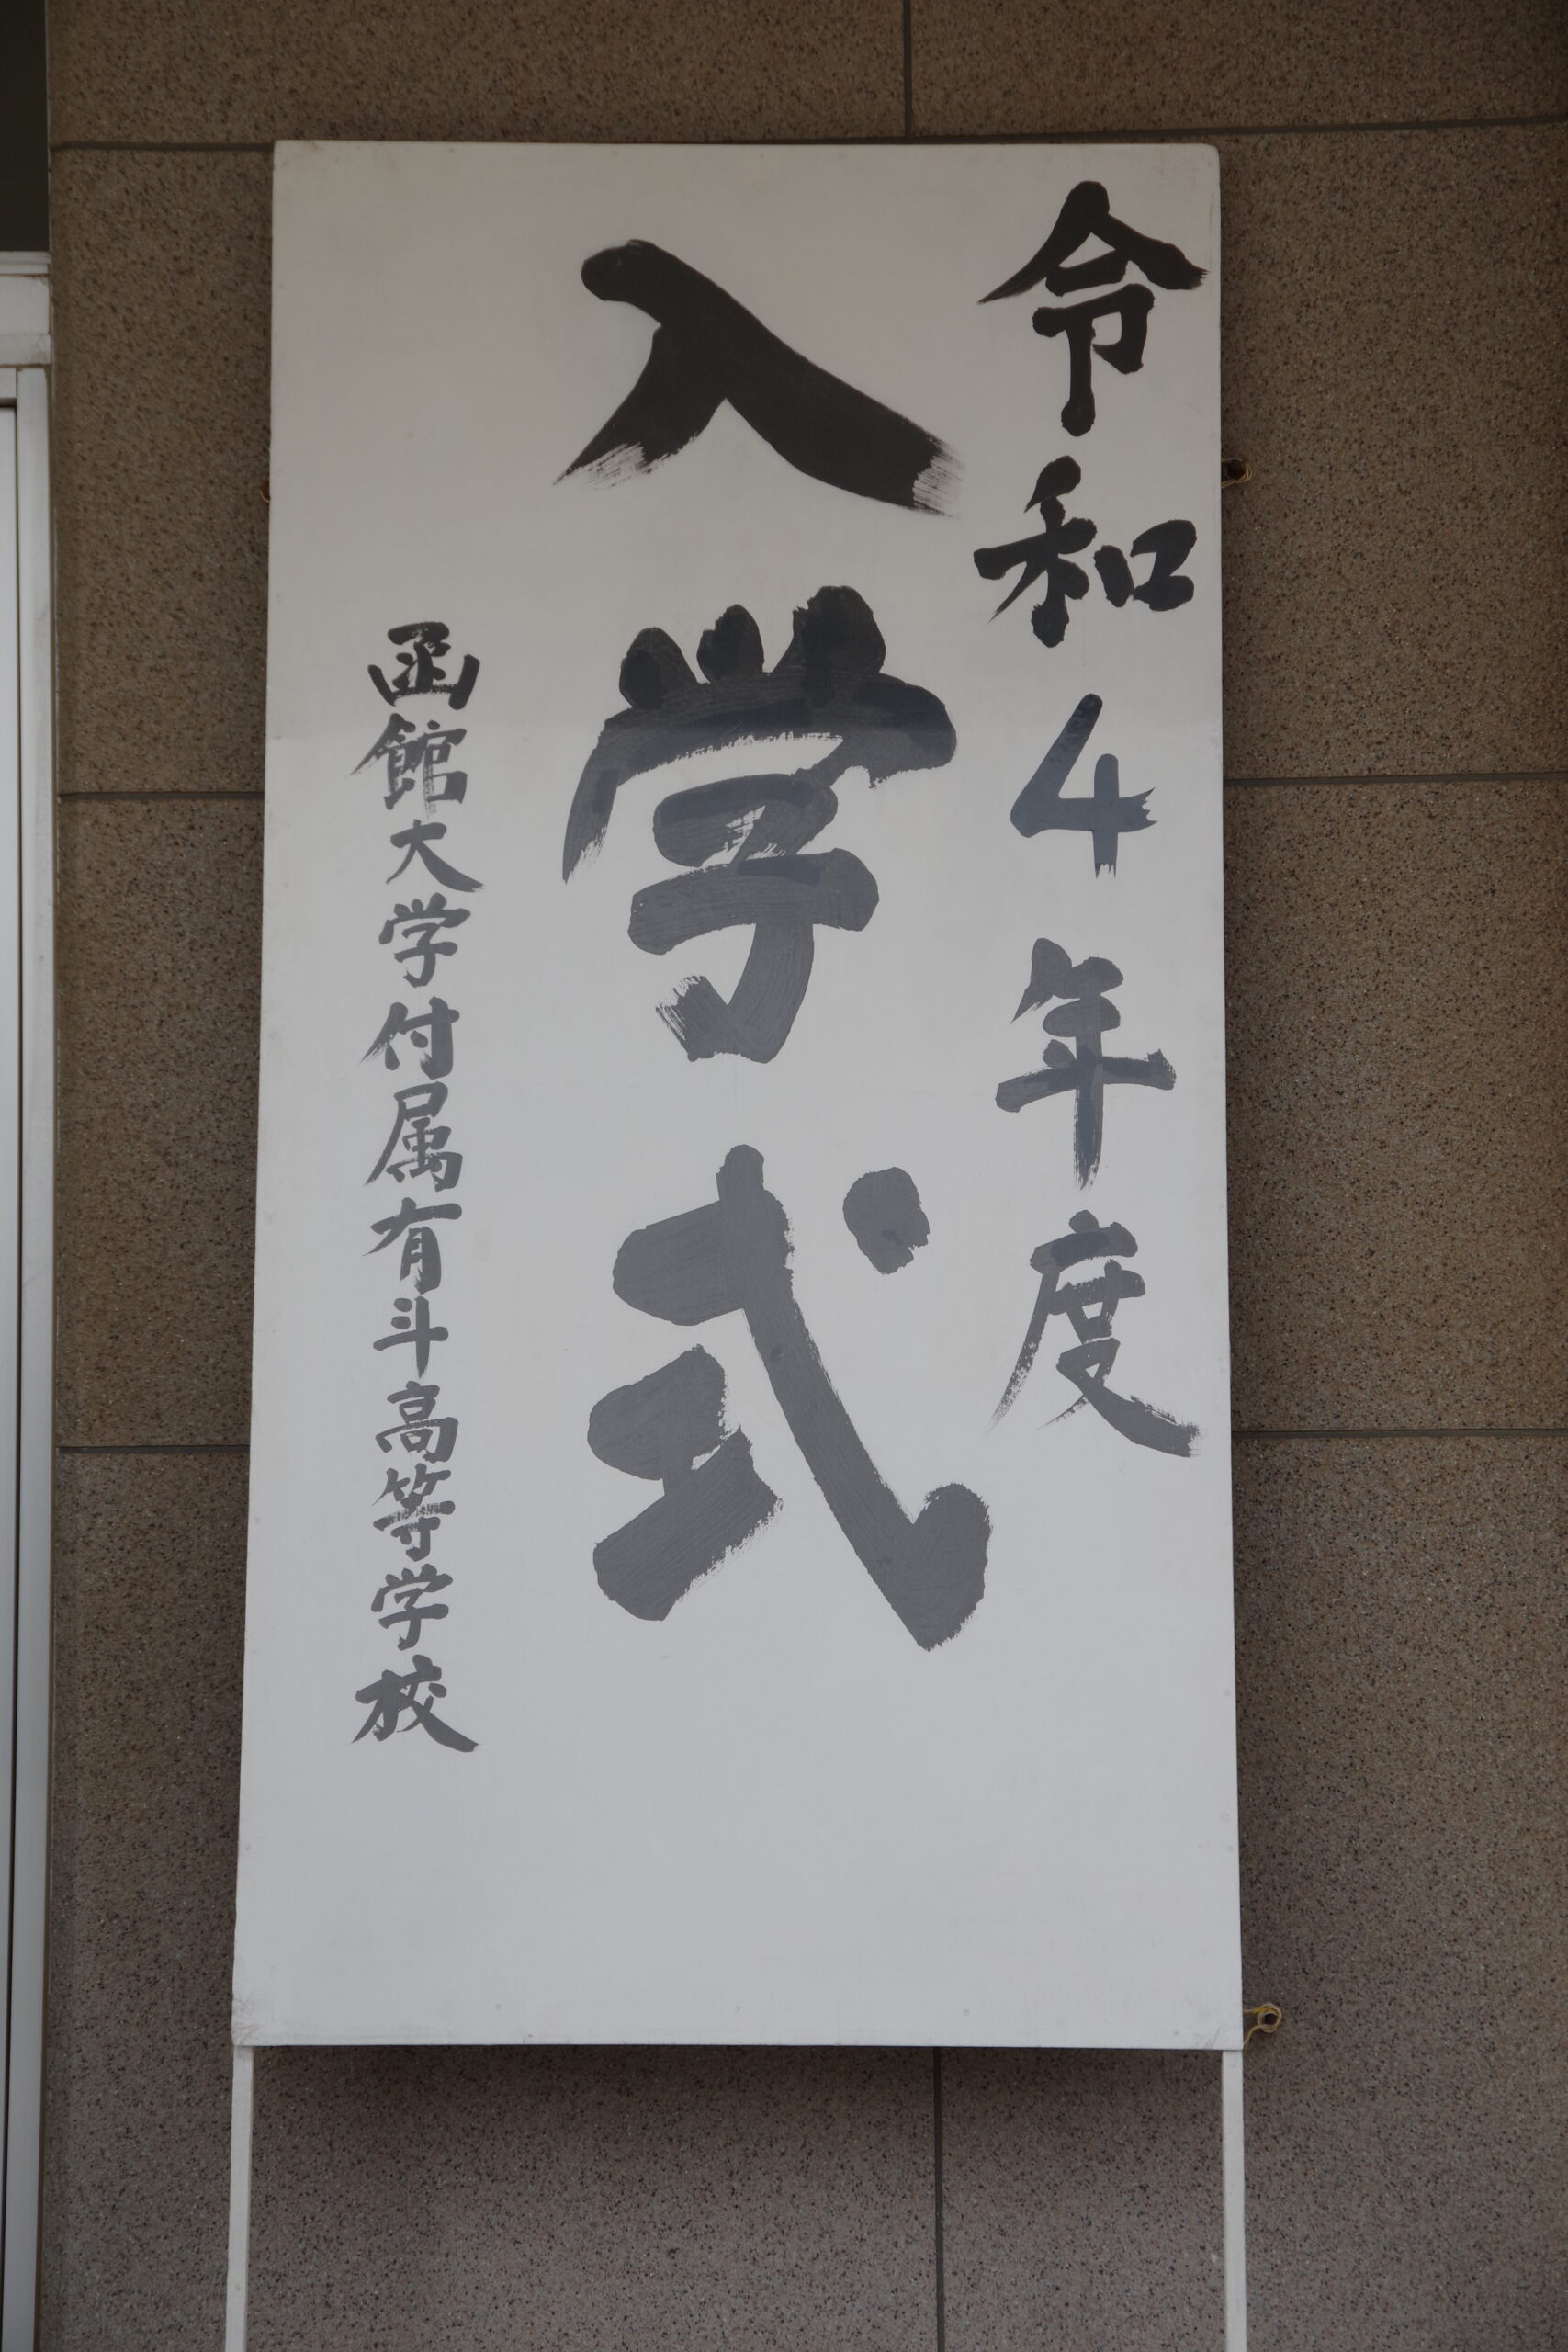 令和4年度
入学式
函館大学付属有斗高等学校